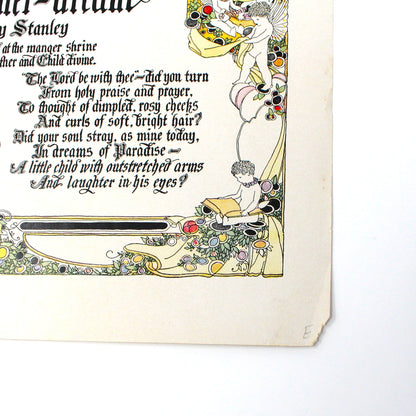 y Stanley
at the manger shrine
ther and Child divine.
The Lord be with thee—did you turn
From holy praise and prayer,
To thought of dimpled, rosy cheeks
And curls of soft, bright hair?
Did your soul stray, as mine today,
In dreams of Paradise—
A little child with outstretched arms
And laughter in his eyes?
E